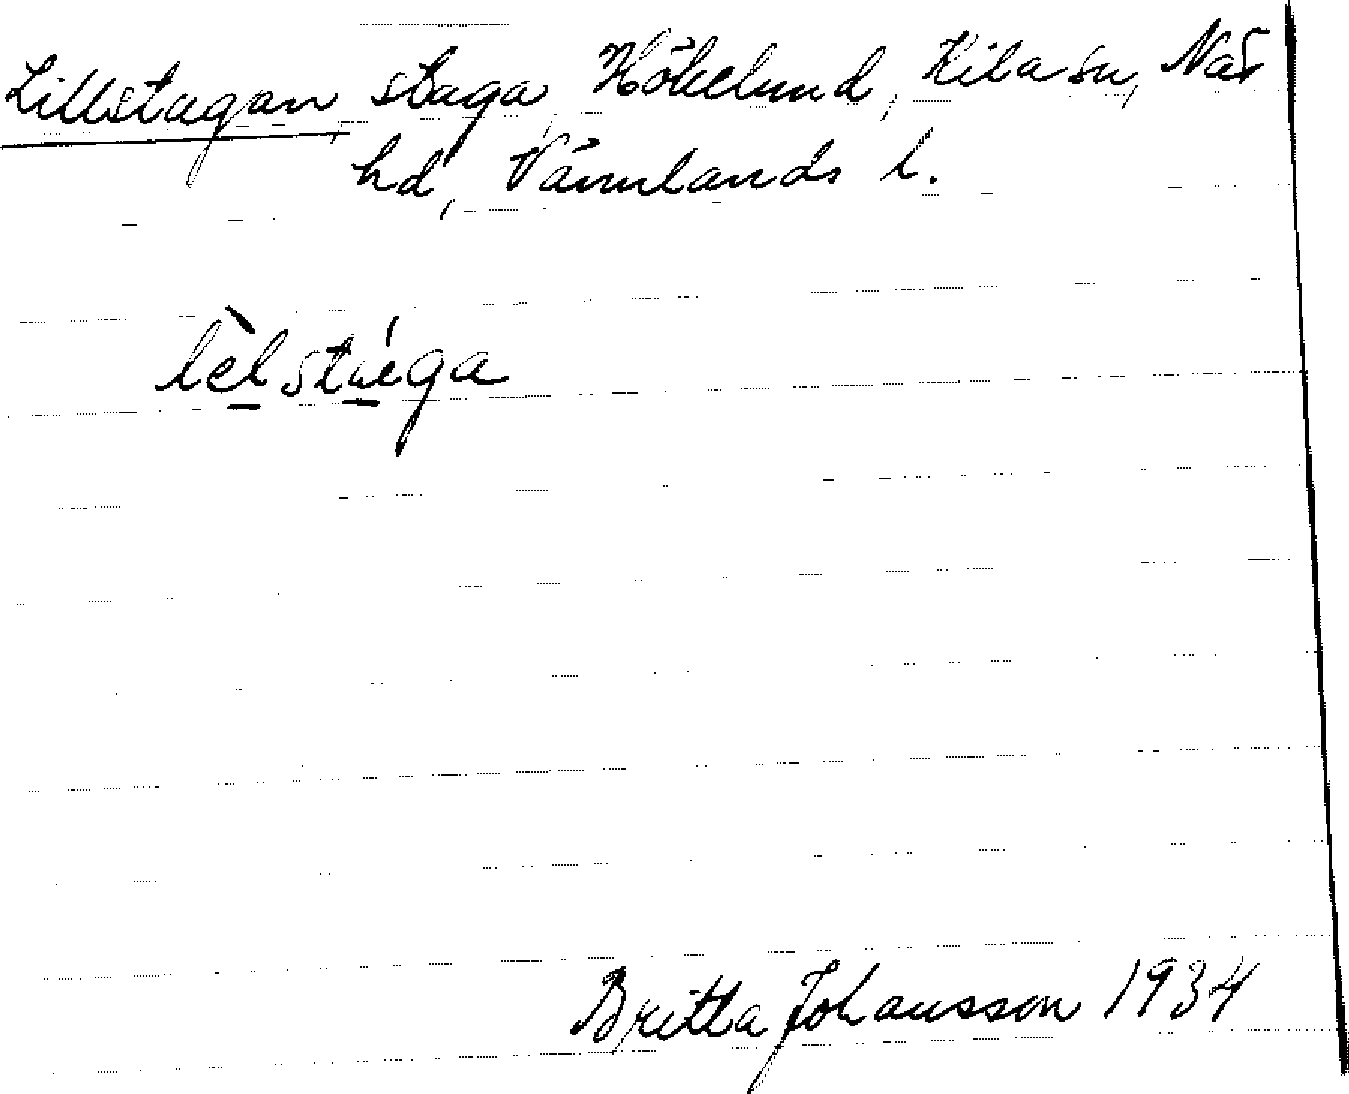 Lillstugan, stuga, Hökelund, Kila sn, Näs
hd, Värmlands l.
lèlstúega
Britta Johansson 1934